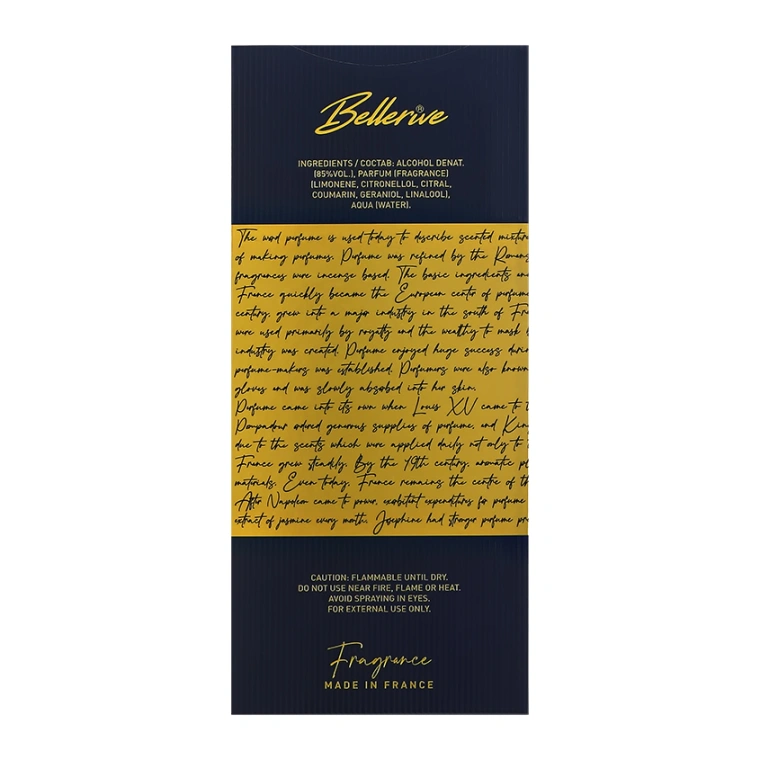 Bellerive®
INGREDIENTS / СОСТАВ: ALCOHOL DENAT.
(85%VOL.), PARFUM (FRAGRANCE)
(LIMONENE, CITRONELLOL, CITRAL,
COUMARIN, GERANIOL, LINALOOL),
AQUA (WATER).
The word perfume is used today to describe scented mixture
of making perfumes. Perfume was refined by the Romans
fragrances were incense based. The basic ingredients an
France quickly became the European center of perfume
century, grew into a major industry in the south of Fr
were used primarily by royalty and the wealthy to mask b
industry was created. Perfume enjoyed huge success durin
perfume-makers was established. Perfumers were also known
gloves and was slowly absorbed into her skin.
Perfume came into its own when Louis XV came to t
Pompadour ordered generous supplies of perfume, and Kin
due to the scents which were applied daily not only to t
France grew steadily. By the 19th century, aromatic pl
materials. Even today, France remains the centre of the
After Napoleon came to power, exorbitant expenditures for perfume
extract of jasmine every month, Josephine had stronger perfume pre
CAUTION: FLAMMABLE UNTIL DRY.
DO NOT USE NEAR FIRE, FLAME OR HEAT.
AVOID SPRAYING IN EYES.
FOR EXTERNAL USE ONLY.
Fragrance
MADE IN FRANCE